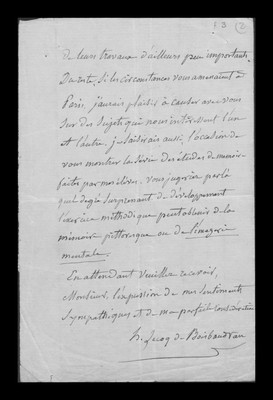 13 2
de leurs travaux d'ailleurs peu importants.
Du reste, si les circonstances vous amenaient à
Paris, j'aurais plaisir à causer avec vous
sur des sujets qui nous intéressent l'un
et l'autre, je saisirais aussi l'occasion de
vous montrer la série des études de mémoire
faites par mes élèves. vous jugeriez par là
quel degré surprenant de développement
l'exercice méthodique peut obtenir de la
mémoire pittoresque ou de l'imagerie
mentale.
En attendant veuillez recevoir,
Monsieur, l'expression de mes sentiments
sympathiques et de ma parfaite considération
h. Lecoq de Boisbaudran